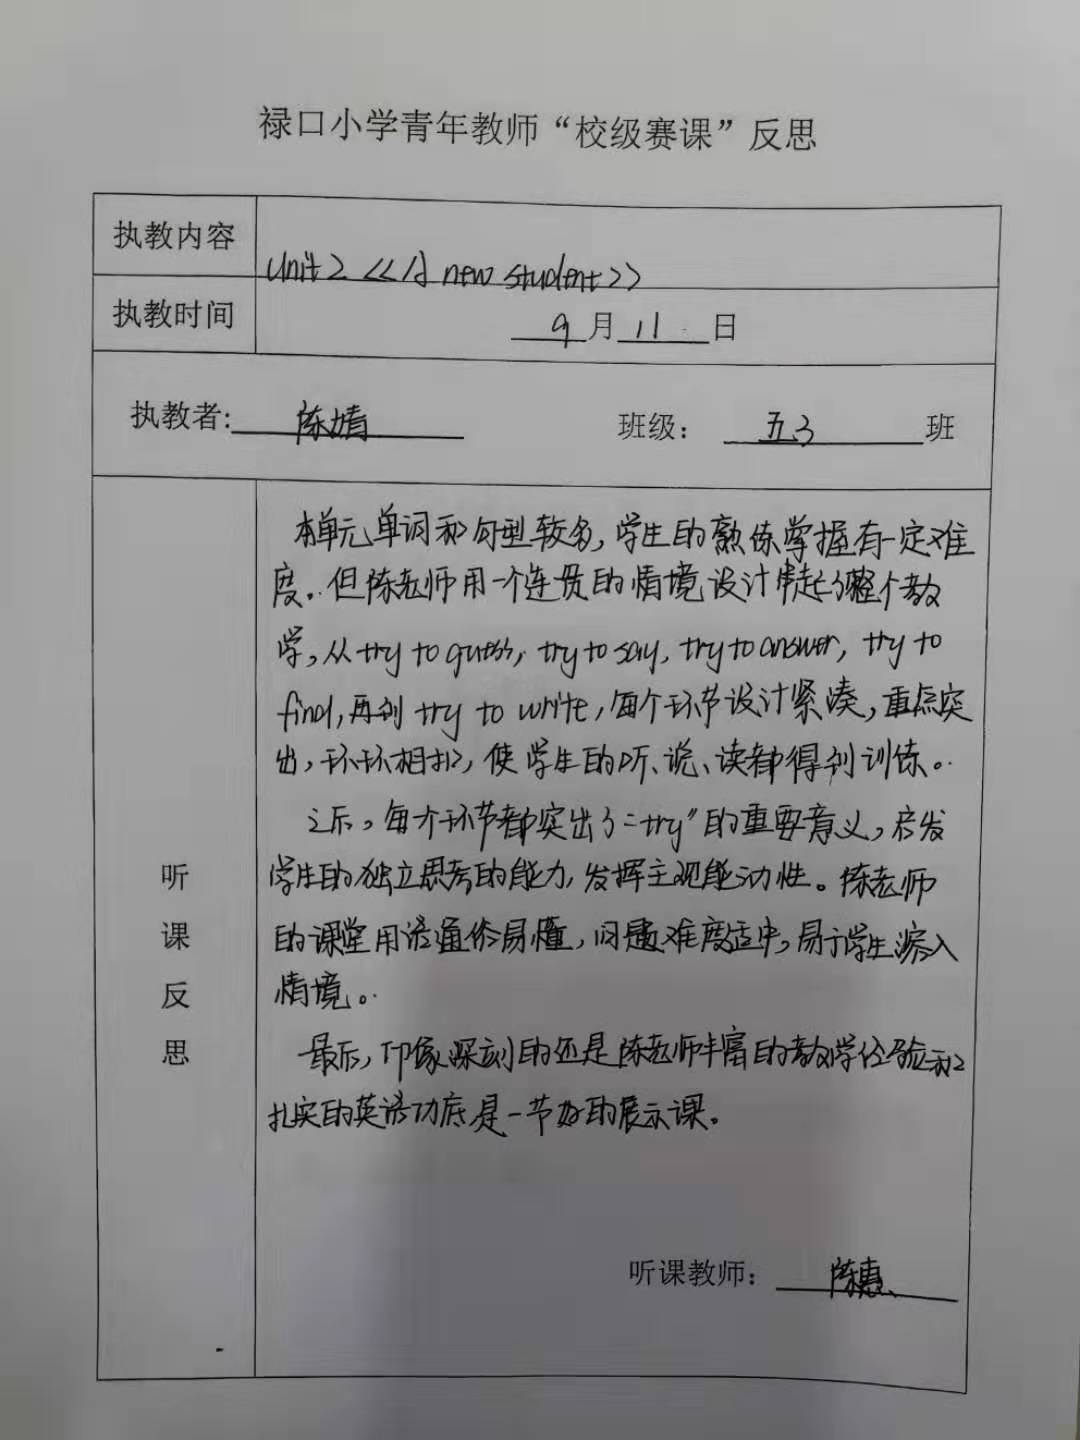 禄口小学青年教师“校级赛课”反思
执教内容
Unit 2 <<A new student>>
执教时间
9月11日
执教者: 陈婧 班级: 五3 班
本单元单词和句型较多,学生的熟练掌握有一定难
度。但陈老师用一个连贯的情境设计串起了整个教
学,从try to guess, try to say, try to answer, try to
find,再到try to write,每个环节设计紧凑,重点突
出,环环相扣,使学生的听、说、读都得到训练。
之后,每个环节都突出了“try”的重要意义,启发
学生的独立思考的能力,发挥主观能动性。陈老师
的课堂用语通俗易懂,问题难度适中,易于学生深入
情境。
最后,印象深刻的还是陈老师丰富的教学经验和
扎实的英语功底是一节好的展示课。
听
课
反
思
听课教师: 陈惠